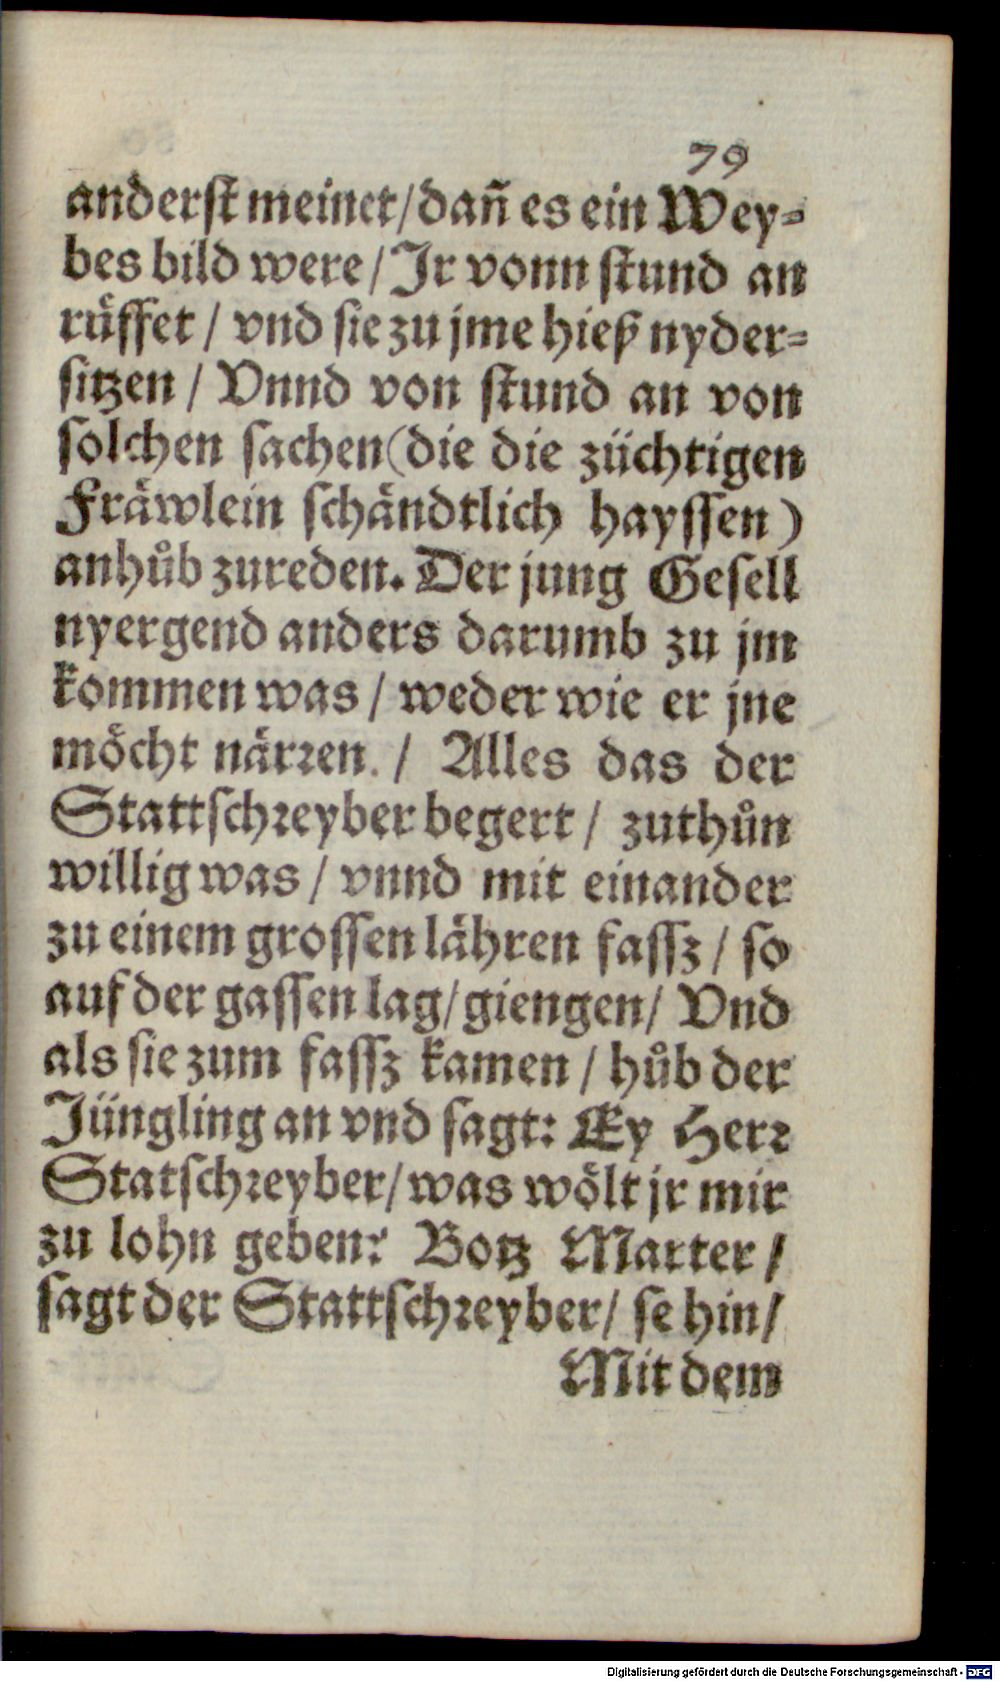 79
anderst meinet/dañ es ein Wey-
bes bild were/Jr vonn stund an
rüffet / vnd sie zu jme hieß nyder-
sitzen / Vnnd von stund an von
solchen sachen(die die züchtigen
Fräwlein schändtlich hayssen)
anhůb zureden. Der jung Gesell
nyergend anders darumb zu jm
kommen was / weder wie er jne
möcht närren. / Alles das der
Stattschreyber begert / zuthůn
willig was / vnnd mit einander
zu einem grossen lähren fassz / so
auf der gassen lag/giengen/ Vnd
als sie zum fassz kamen / hůb der
Jüngling an vnd sagt: Ey Herr
Statschreyber/was wölt jr mir
zu lohn geben? Botz Marter /
sagt der Stattschreyber/ se hin/
Mit dem
Digitalisierung gefördert durch die Deutsche Forschungsgemeinschaft - DFG